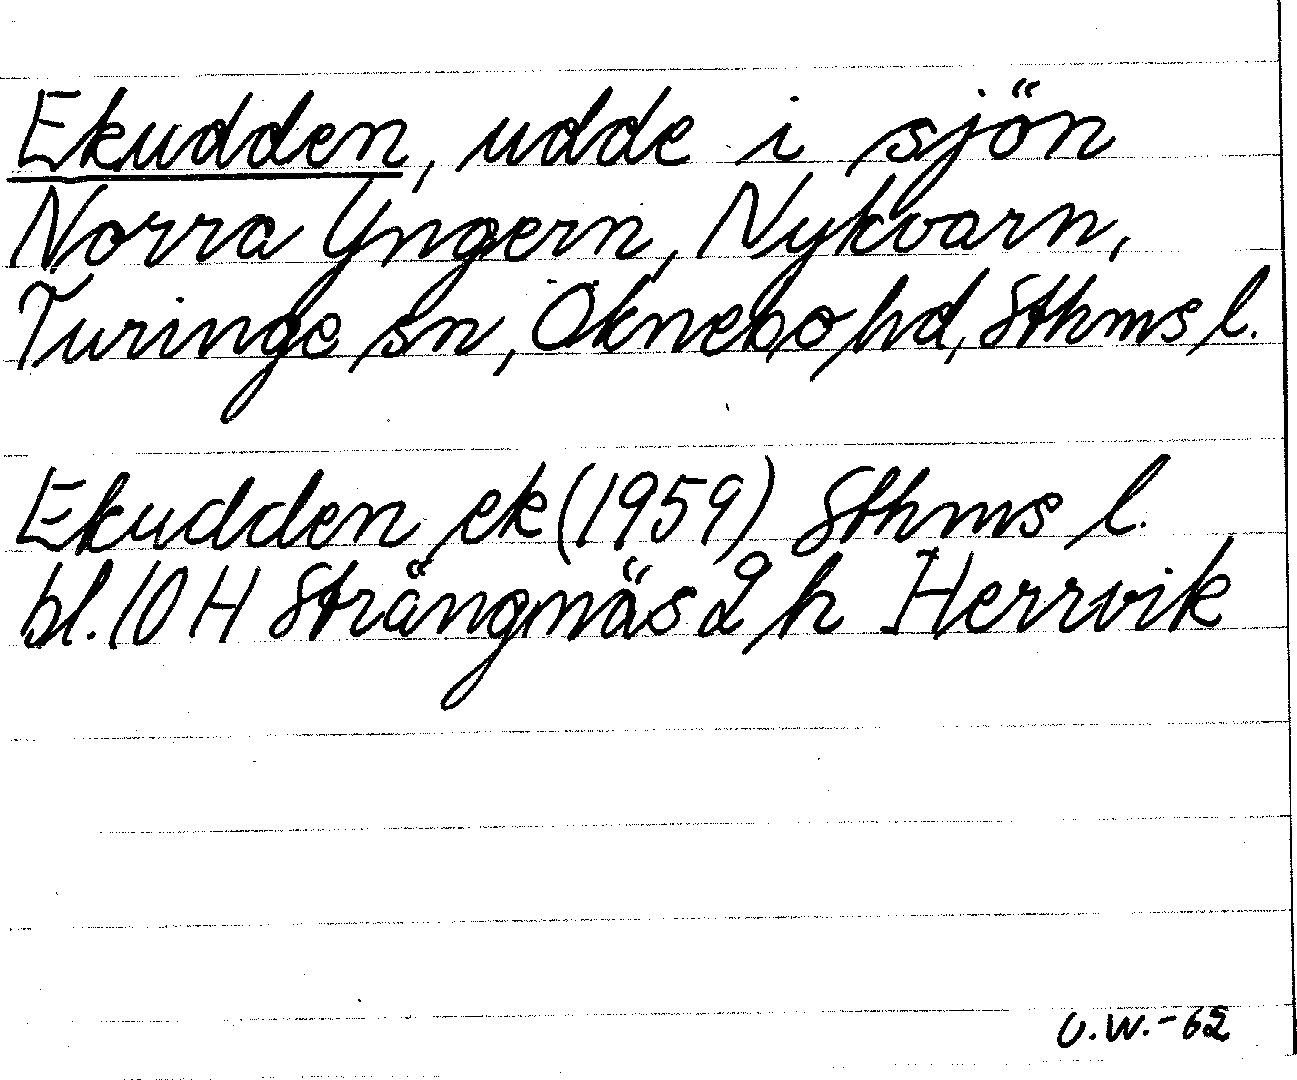 Ekudden, udde i sjön
Norra Yngern, Nykvarn,
Turinge sn, Öknebo hd, Sthms l.
Ekudden ek (1959) Sthms l.
bl. 10 H Strängnäs 2 h Herrvik
U.W.-62